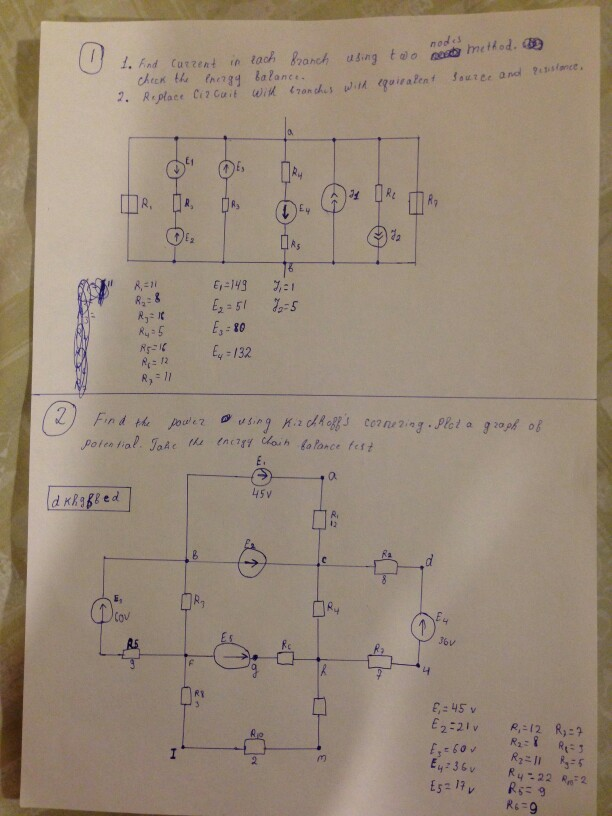 1
1. Find current in each branch using two nodes method.
check the energy balance.
2. Replace circuit with branches with equivalent source and resistance.
a
E1
E3
R4
R1
R2
R3
E4
J1
R6
R7
E2
R5
J2
в
R1=11
R2=8
R3=16
R4=5
R5=16
R6=12
R7=11
E1=149
E2=51
E3=80
E4=132
J1=1
J2=5
2
Find the power using Kirchhoff's cornering. Plot a graph of
potential. Take the energy chain balance test
E1
45V
a
R1
12
в
E2
c
R2
8
d
E3
60V
R3
R4
E4
36V
R5
9
F
E5
g
R6
h
R7
7
4
R8
3
I
R10
2
m
E1=45 v
E2=21 v
E3=60 v
E4=36 v
E5=17 v
R1=12
R2=8
R3=11
R4=22
R5=9
R6=9
R7=7
R8=3
R9=5
R10=2